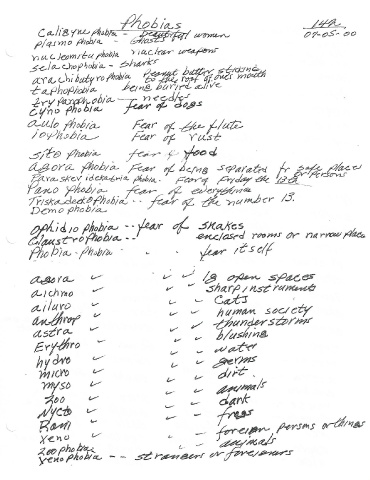 Phobias
14A
07-05-00
Caligynephobia - beautiful women
plasmophobia - Ghosts
nucleomituphobia nuclear weapons
selachophobia - sharks
arachibutyrophobia Peanut butter sticking
to the roof of ones mouth
taphophobia being buried alive
trypanophobia - needles
Cynophobia fear of dogs
aulophobia Fear of the flute
iophobia Fear of rust
sitophobia fear of food
agoraphobia Fear of being separated fr safe place
or persons
Paraskevidekatriaphobia. Fear of Friday the 13th
Panophobia fear of everything
Triskadeckophobia -- fear of the number 13.
Demophobia
Ophidiophobia -- fear of snakes
Claustrophobia -- enclosed rooms or narrow places
Phobiaphobia " " fear itself
agora open spaces
aichmo sharp instruments
ailuro cats
anthrop human society
astra thunderstorms
Erythro blushing
hydro water
micro germs
myso dirt
zoo animals
Nycto dark
Rani frogs
xeno foreign persons or things
zoophobia animals
xenophobia -- strangers or foreigners